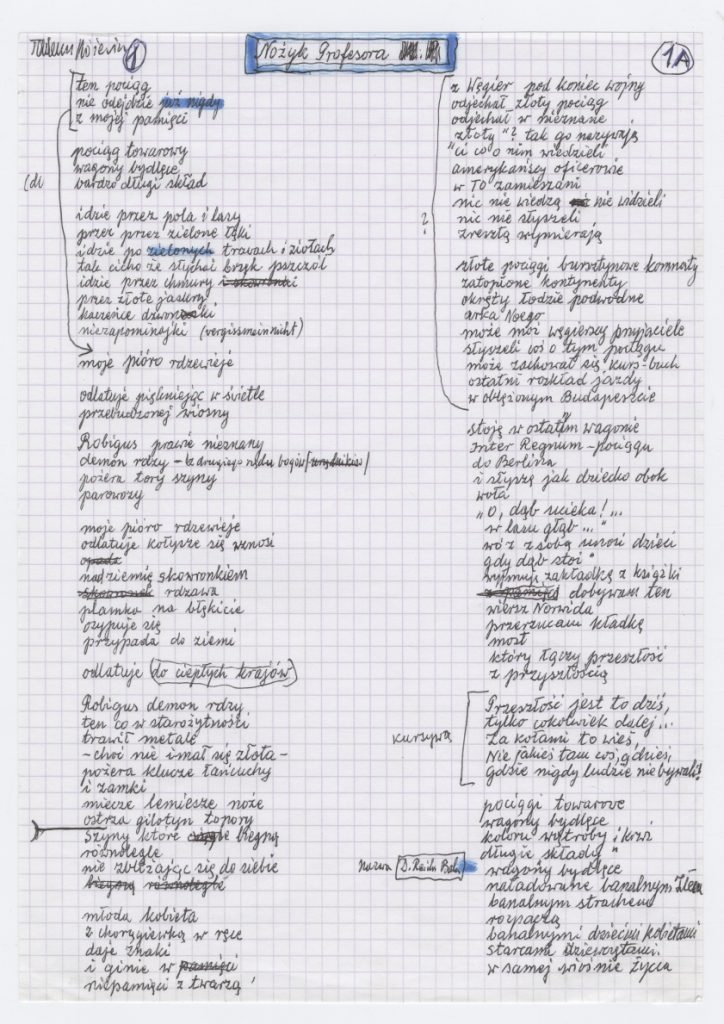 Nożyk Profesora
1
1A
ten pociąg
nie odejdzie już nigdy
z mojej pamięci
pociąg towarowy
wagony bydlęce
bardzo długi skład
idzie przez pola i lasy
przez przez zielone łąki
idzie po zielonych trawach i ziołach
tak cicho że słychać bzyk pszczół
idzie przez chmury
przez złote jaskry
kaczeńce
niezapominajki (vergissmeinnicht)
moje pióro rdzewieje
odlatuje pięknie jąc w świetle
przebudzonej wiosny
Robigus prawie nieznany
demon rdzy – z drugiego rzędu bogów
pożera tory szyny
parowozy
moje pióro rdzewieje
odlatuje kołysze się wznosi
opada
nad ziemię skowronkiem
skowronek rdzawa
plamka na błękicie
osypuje się
przypada do ziemi
odlatuje do ciepłych krajów
Robigus demon rdzy
ten co w starożytności
trawił metale
– choć nie imał się złota –
pożera klucze łańcuchy
i zamki
miecze lemiesze noże
ostrza gilotyn topory
Szyny które ciągle biegną
równolegle
nie zbliżając się do siebie
biegną równolegle
młoda kobieta
z chorągiewką w ręce
daje znaki
i ginie w pamięci
niepamięci z twarzą
z Węgier pod koniec wojny
odjechał złoty pociąg
odjechał w nieznane
"złoty"? tak go nazywają
ci co o nim wiedzieli
amerykańscy oficerowie
w To zamieszani
nic nie wiedzą nie widzieli
nic nie słyszeli
zresztą wymierają
?
złote pociągi bursztynowe komnaty
zatopione kontynenty
okręty łodzie podwodne
arka Noego
może moi węgierscy przyjaciele
słyszeli coś o tym pociągu
może zachował się kurs-buch
ostatni rozkład jazdy
w oblężonym Budapeszcie
stoję w ostatim wagonie
Inter Regnum – pociągu
do Berlina
i słyszę jak dziecko obok
woła
"O, dąb ucieka!...
w lasu głąb..."
wóz z sobą unosi dzieci
gdy dąb stoi"
wyjmuję zakładkę z książki
z pamięci dobywam ten
wiersz Norwida
przerzucam kładkę
most
który łączy przeszłość
z przyszłością
kursywą
Przeszłość jest to dziś,
tylko cokolwiek dalej...
Za kołami to wieś,
Nie jakieś tam coś, gdzieś,
Gdzie nigdy ludzie nie bywali!
pociągi towarowe
wagony bydlęce
koloru wątroby i krwi
długie składy
wagony bydlęce
nazwa D. Reichs Bahn
naładowane banalnym Złem
banalnym strachem
rozpaczą
banalnymi dziećmi kobietami
starcami dziewczętami
w samej wiośnie życia